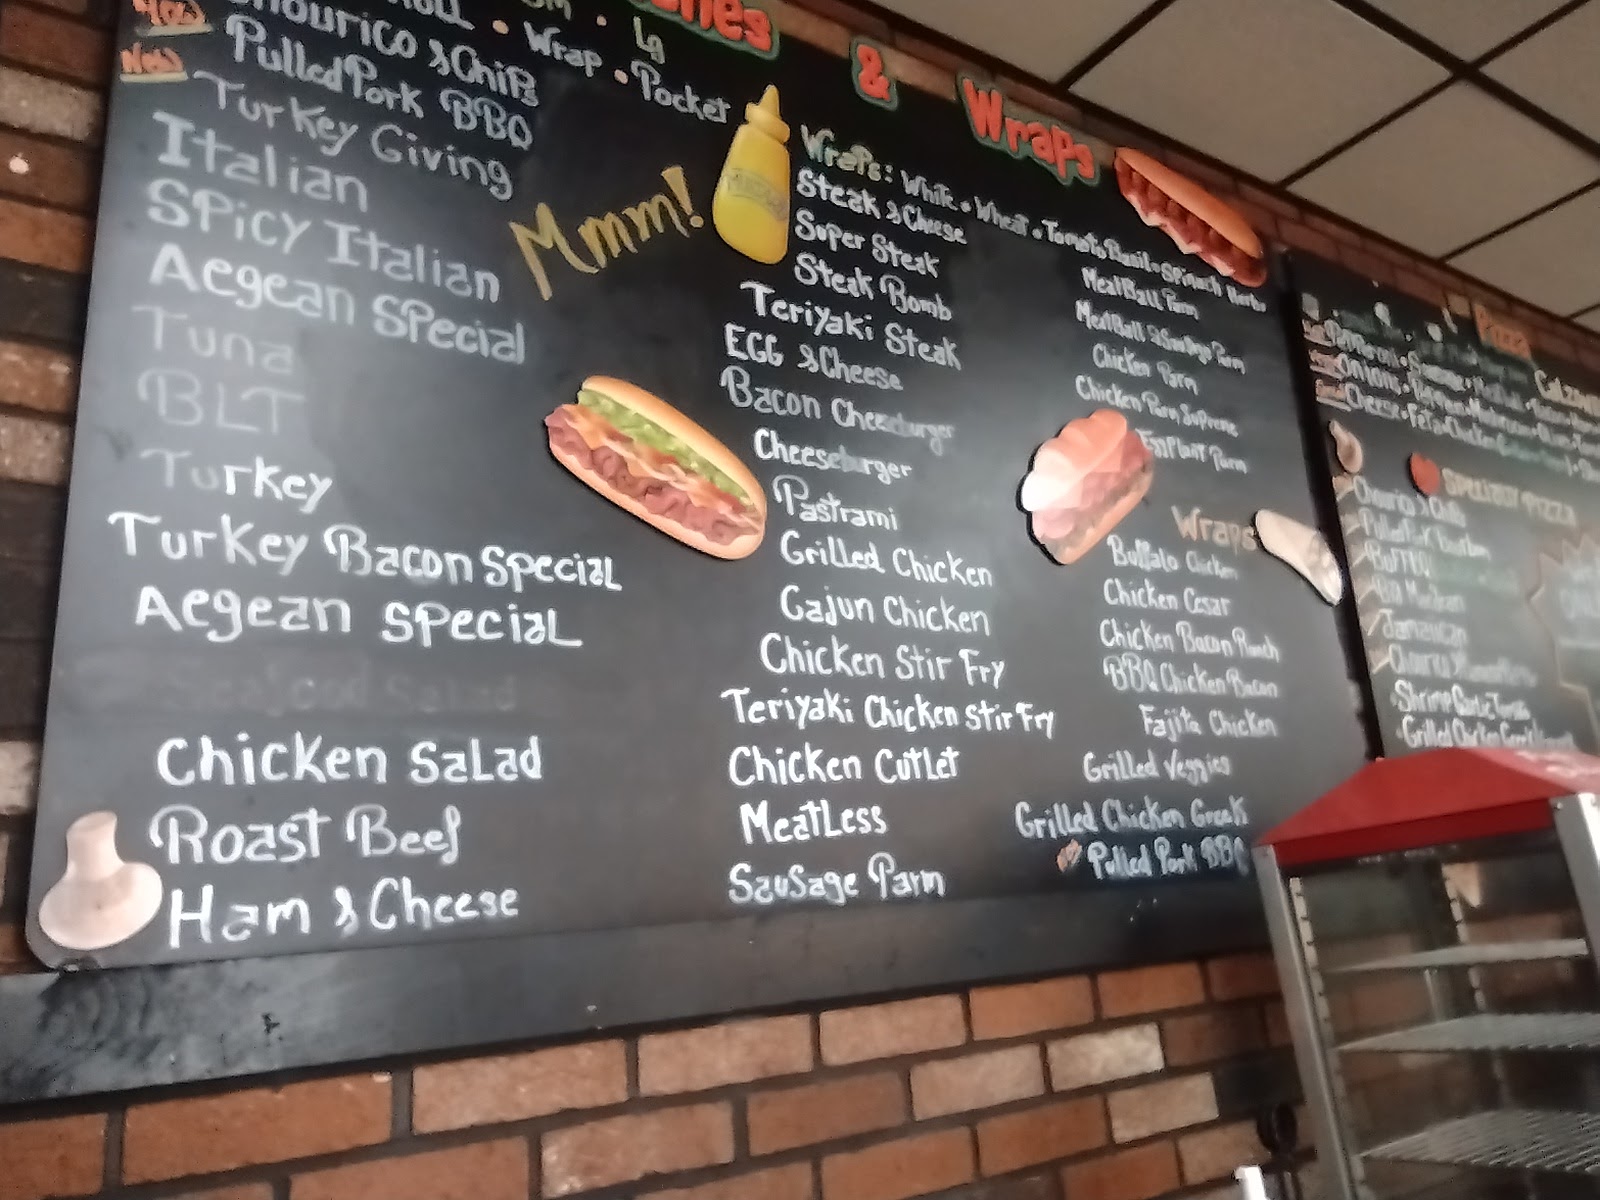 & Wraps
Wrap • Pocket
Lg
New
& Chips
New
Pulled Pork BBQ
Turkey Giving
Italian
SPicy Italian
Aegean SPecial
Tuna
BLT
Turkey
Turkey Bacon Special
Aegean Special
Seafood Salad
Chicken Salad
Roast Beef
Ham & Cheese
Mmm!
Wraps: White • Wheat • Tomato Basil • Spinach Herb
Steak & Cheese
Super Steak
Steak Bomb
Teriyaki Steak
EGG & Cheese
Bacon Cheeseburger
Cheeseburger
Pastrami
Grilled Chicken
Cajun Chicken
Chicken Stir Fry
Teriyaki Chicken Stir Fry
Chicken Cutlet
MeatLess
Sausage Parm
MeatBall Parm
MeatBall & Sausage Parm
Chicken Parm
Chicken Parm Supreme
EggPlant Parm
Wraps
Buffalo Chicken
Chicken Cesar
Chicken Bacon Ranch
BBQ Chicken Bacon
Fajita Chicken
Grilled Veggies
Grilled Chicken Greek
Pulled Pork BBQ
Pizza
Onions
Cheese • Feta • Chicken
Specialty Pizza
Jamaican
Shrimp Garlic
Grilled Chicken Greek